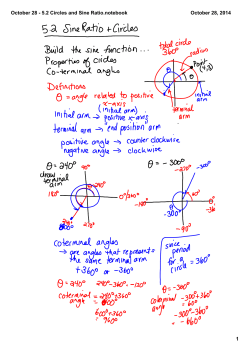 October 28 - 5.2 Circles and Sine Ratio.notebook
October 28, 2014
5.2 Sine Ratio + Circles
Build the sine function...
Properties of circles
Co-terminal angles
total circle
360°
radius
Point
(4,3)
θ
initial
arm
terminal
arm
Definitions
θ = angle related to positive
x-axis
(initial arm)
initial arm → positive x-axis
terminal arm → end position arm
positive angle → counter clockwise
negative angle → clockwise
θ = 240°
90°
draw
terminal
arm
180°
0°/360°
240°
270°
θ = -300°
-270°
-300°
-180°
0°
-36
-300°
-90°
coterminal angles
→ are angles that represent
the same terminal arm
+360° or -360°
since
period
for a
circle = 360°
θ = 240°
240°-360° = -120°
coterminal
angle
= 240°+360°
= 600°
600°+360°
= 960°
θ = -300°
coterminal
angle
= -300°+360°
= 60°
= -300°-360°
= -660°
1